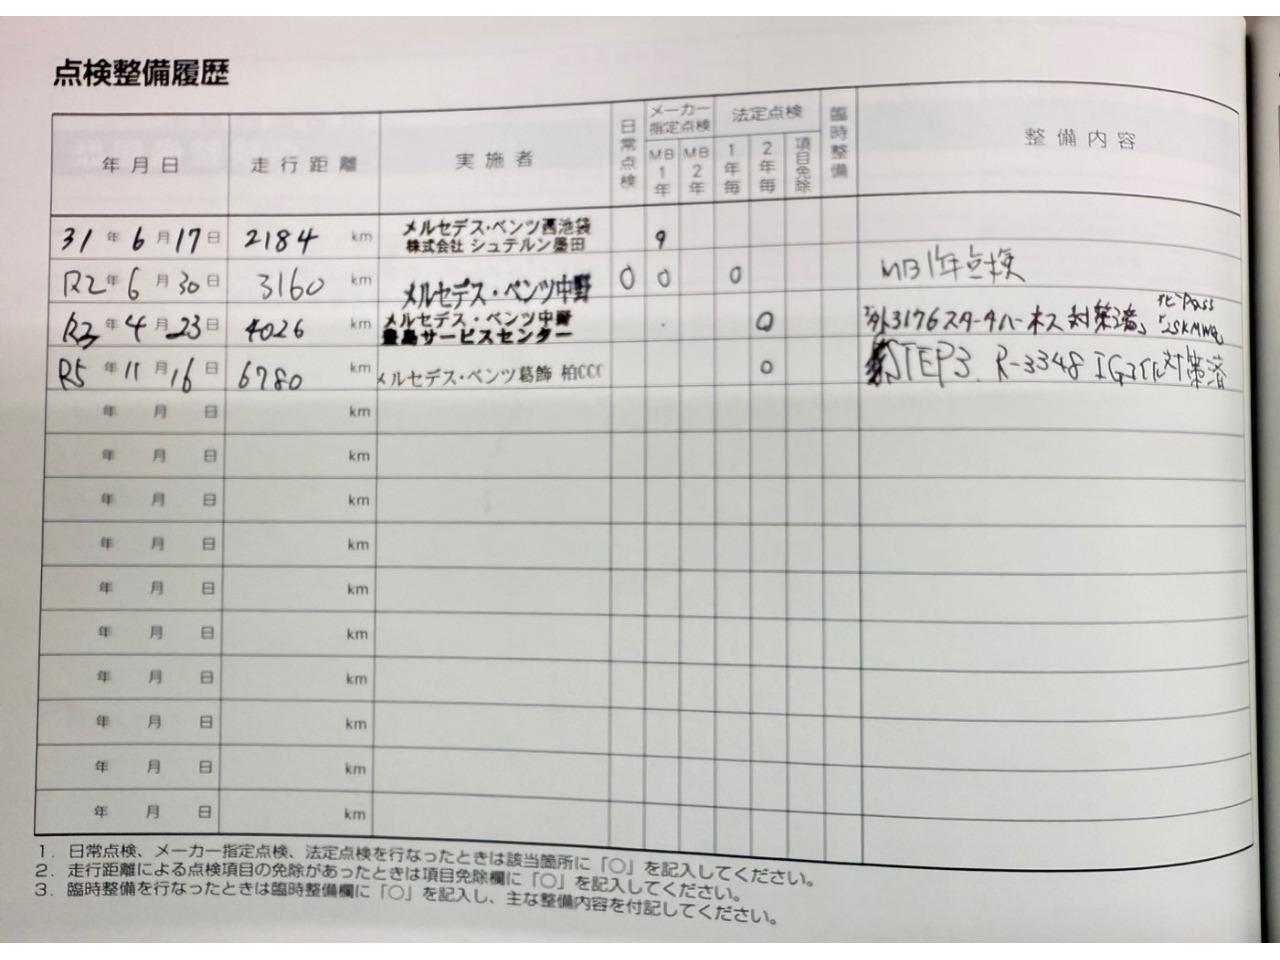 点検整備履歴
年月日 走行距離 実施者 日常点検 メーカー指定点検 MB1年 MB2年 法定点検 1年毎 2年毎 項目免除 臨時整備 整備内容
31年6月17日 2184 km メルセデス・ベンツ西池袋
株式会社 シュテルン墨田 9
R2年6月30日 3160 km メルセデス・ベンツ中野 〇 〇 〇 MB1年点検
R3年4月23日 4026 km メルセデス・ベンツ中野
豊島サービスセンター 〇 3176スターターハーネス対策済
R5年11月16日 6780 km メルセデス・ベンツ葛飾 柏CCC 〇 STEP3. R-3348 IGコイル対策済
年 月 日 km
年 月 日 km
年 月 日 km
年 月 日 km
年 月 日 km
年 月 日 km
年 月 日 km
年 月 日 km
年 月 日 km
年 月 日 km
1. 日常点検、メーカー指定点検、法定点検を行なったときは該当箇所に「〇」を記入してください。
2. 走行距離による点検項目の免除があったときは項目免除欄に「〇」を記入してください。
3. 臨時整備を行なったときは臨時整備欄に「〇」を記入し、主な整備内容を付記してください。